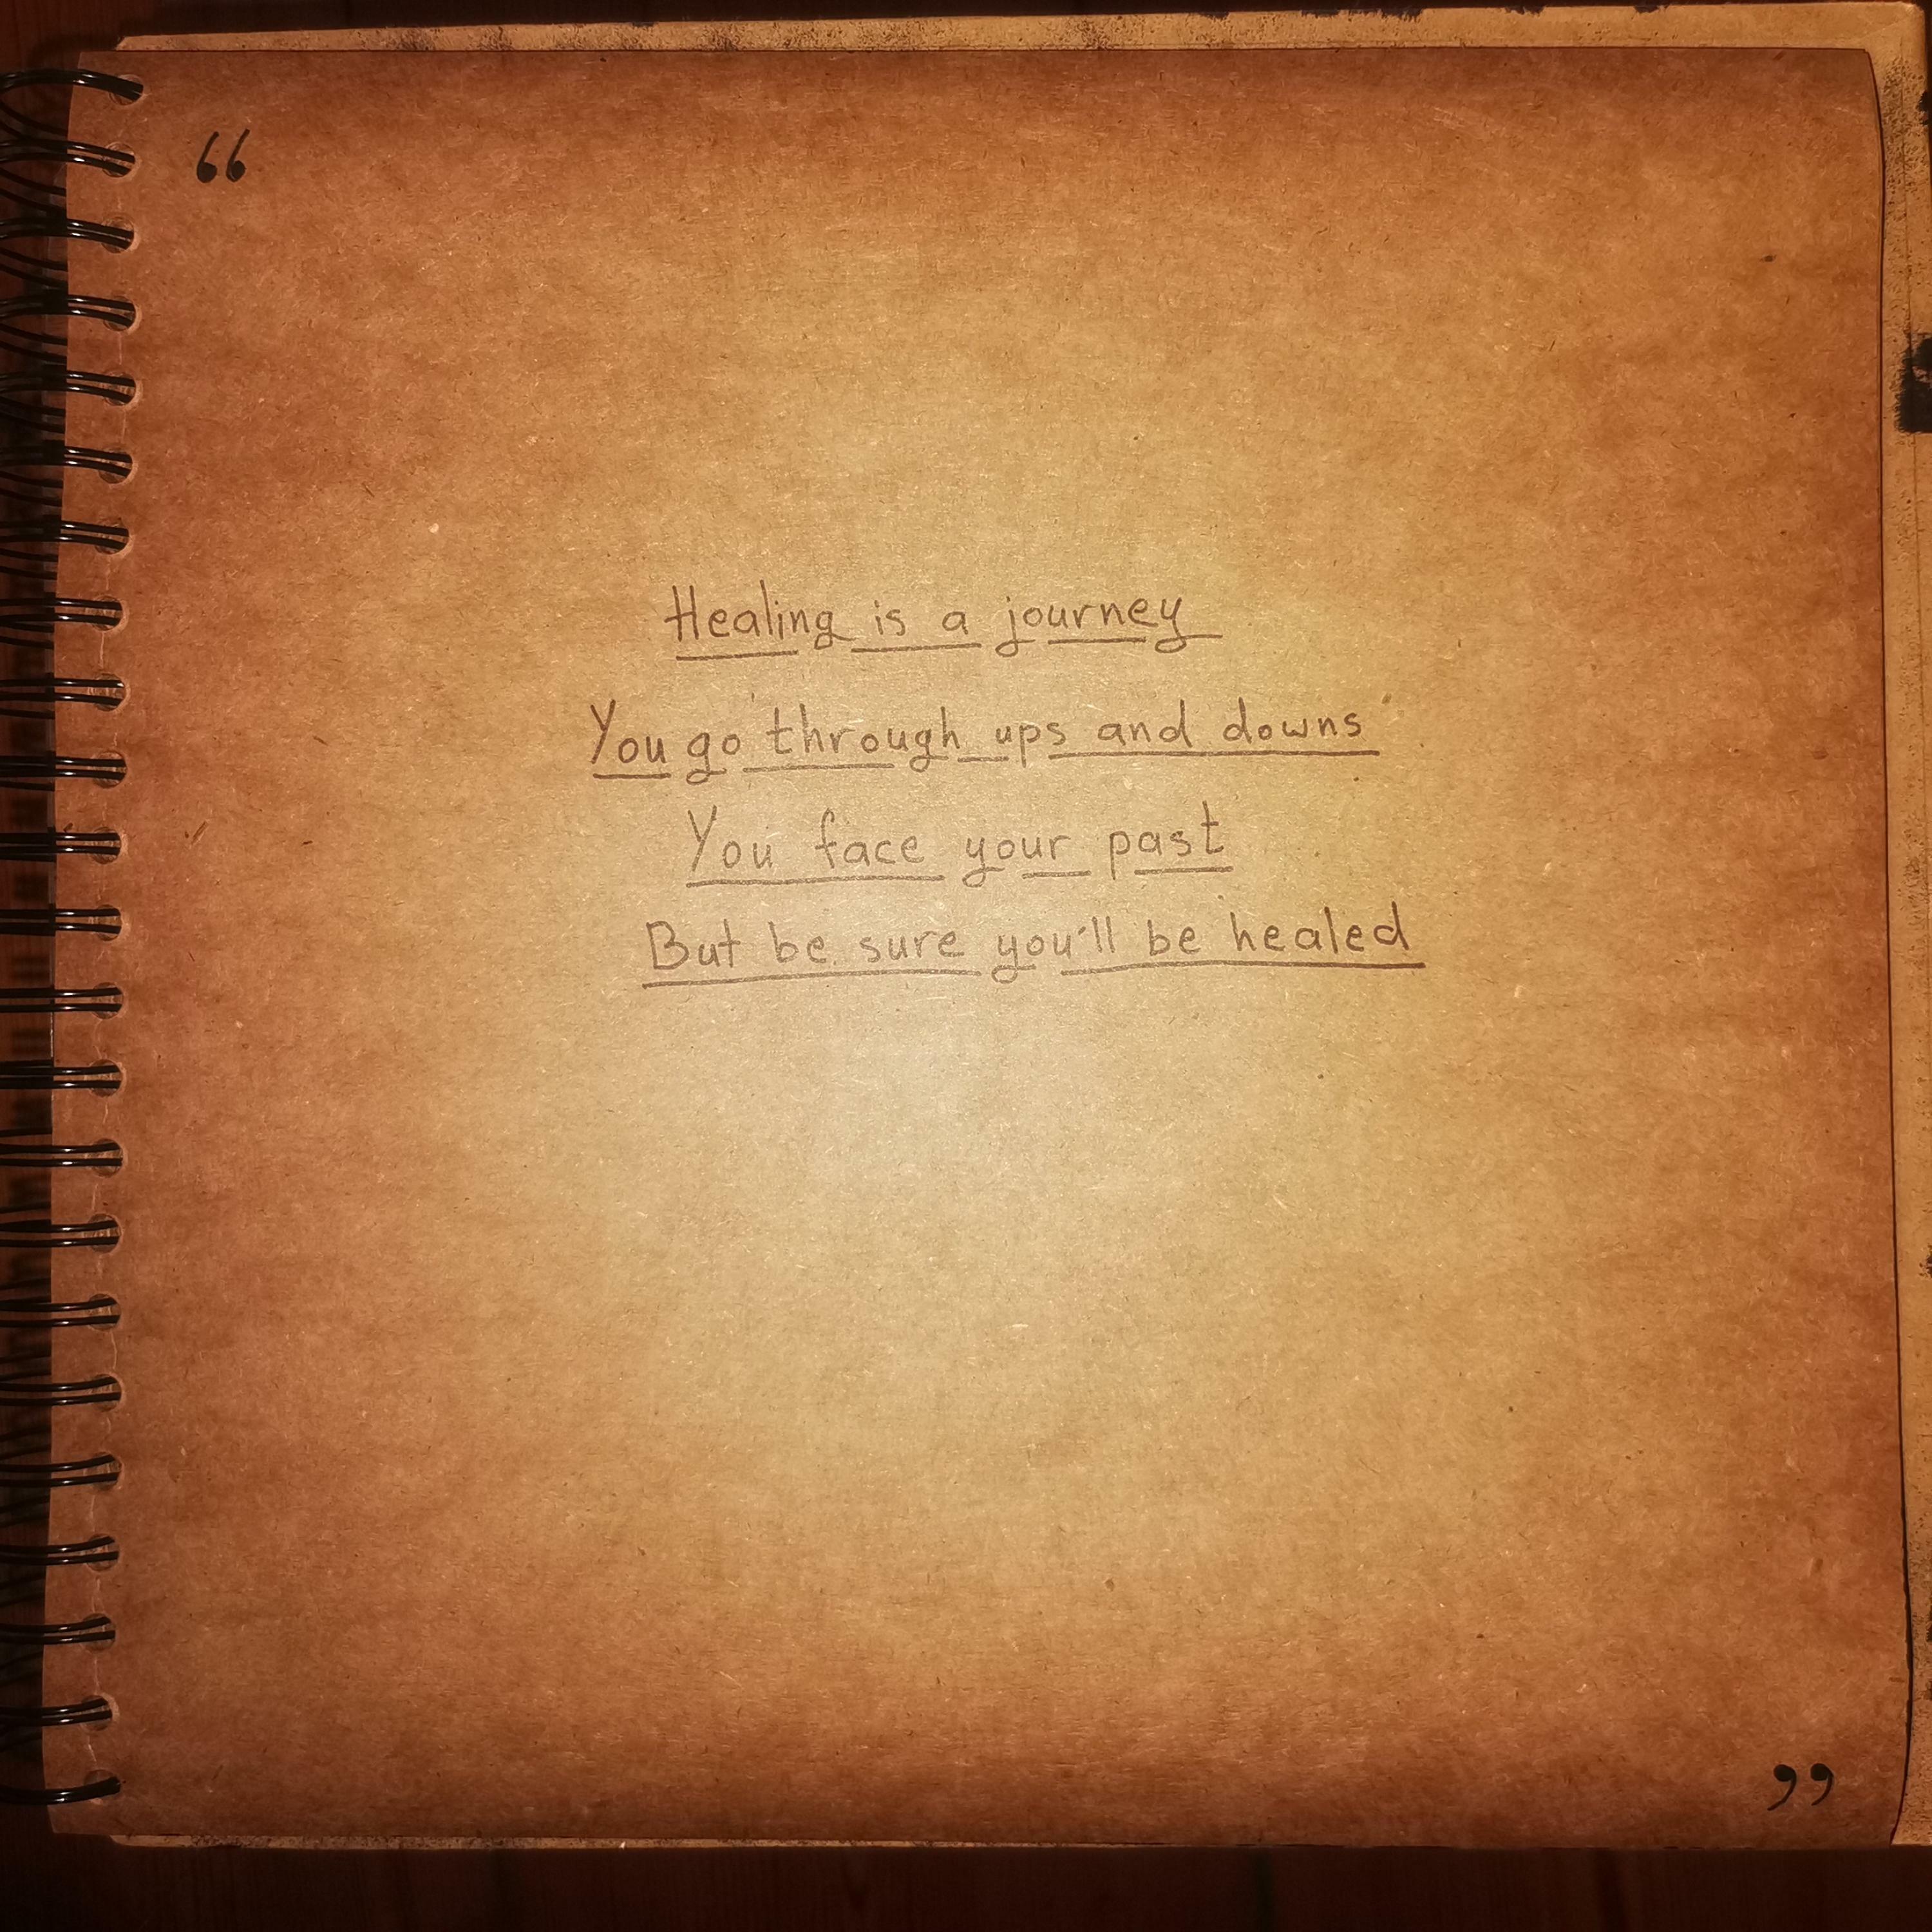 “
Healing is a journey
You go through ups and downs
You face your past
But be sure you'll be healed
”